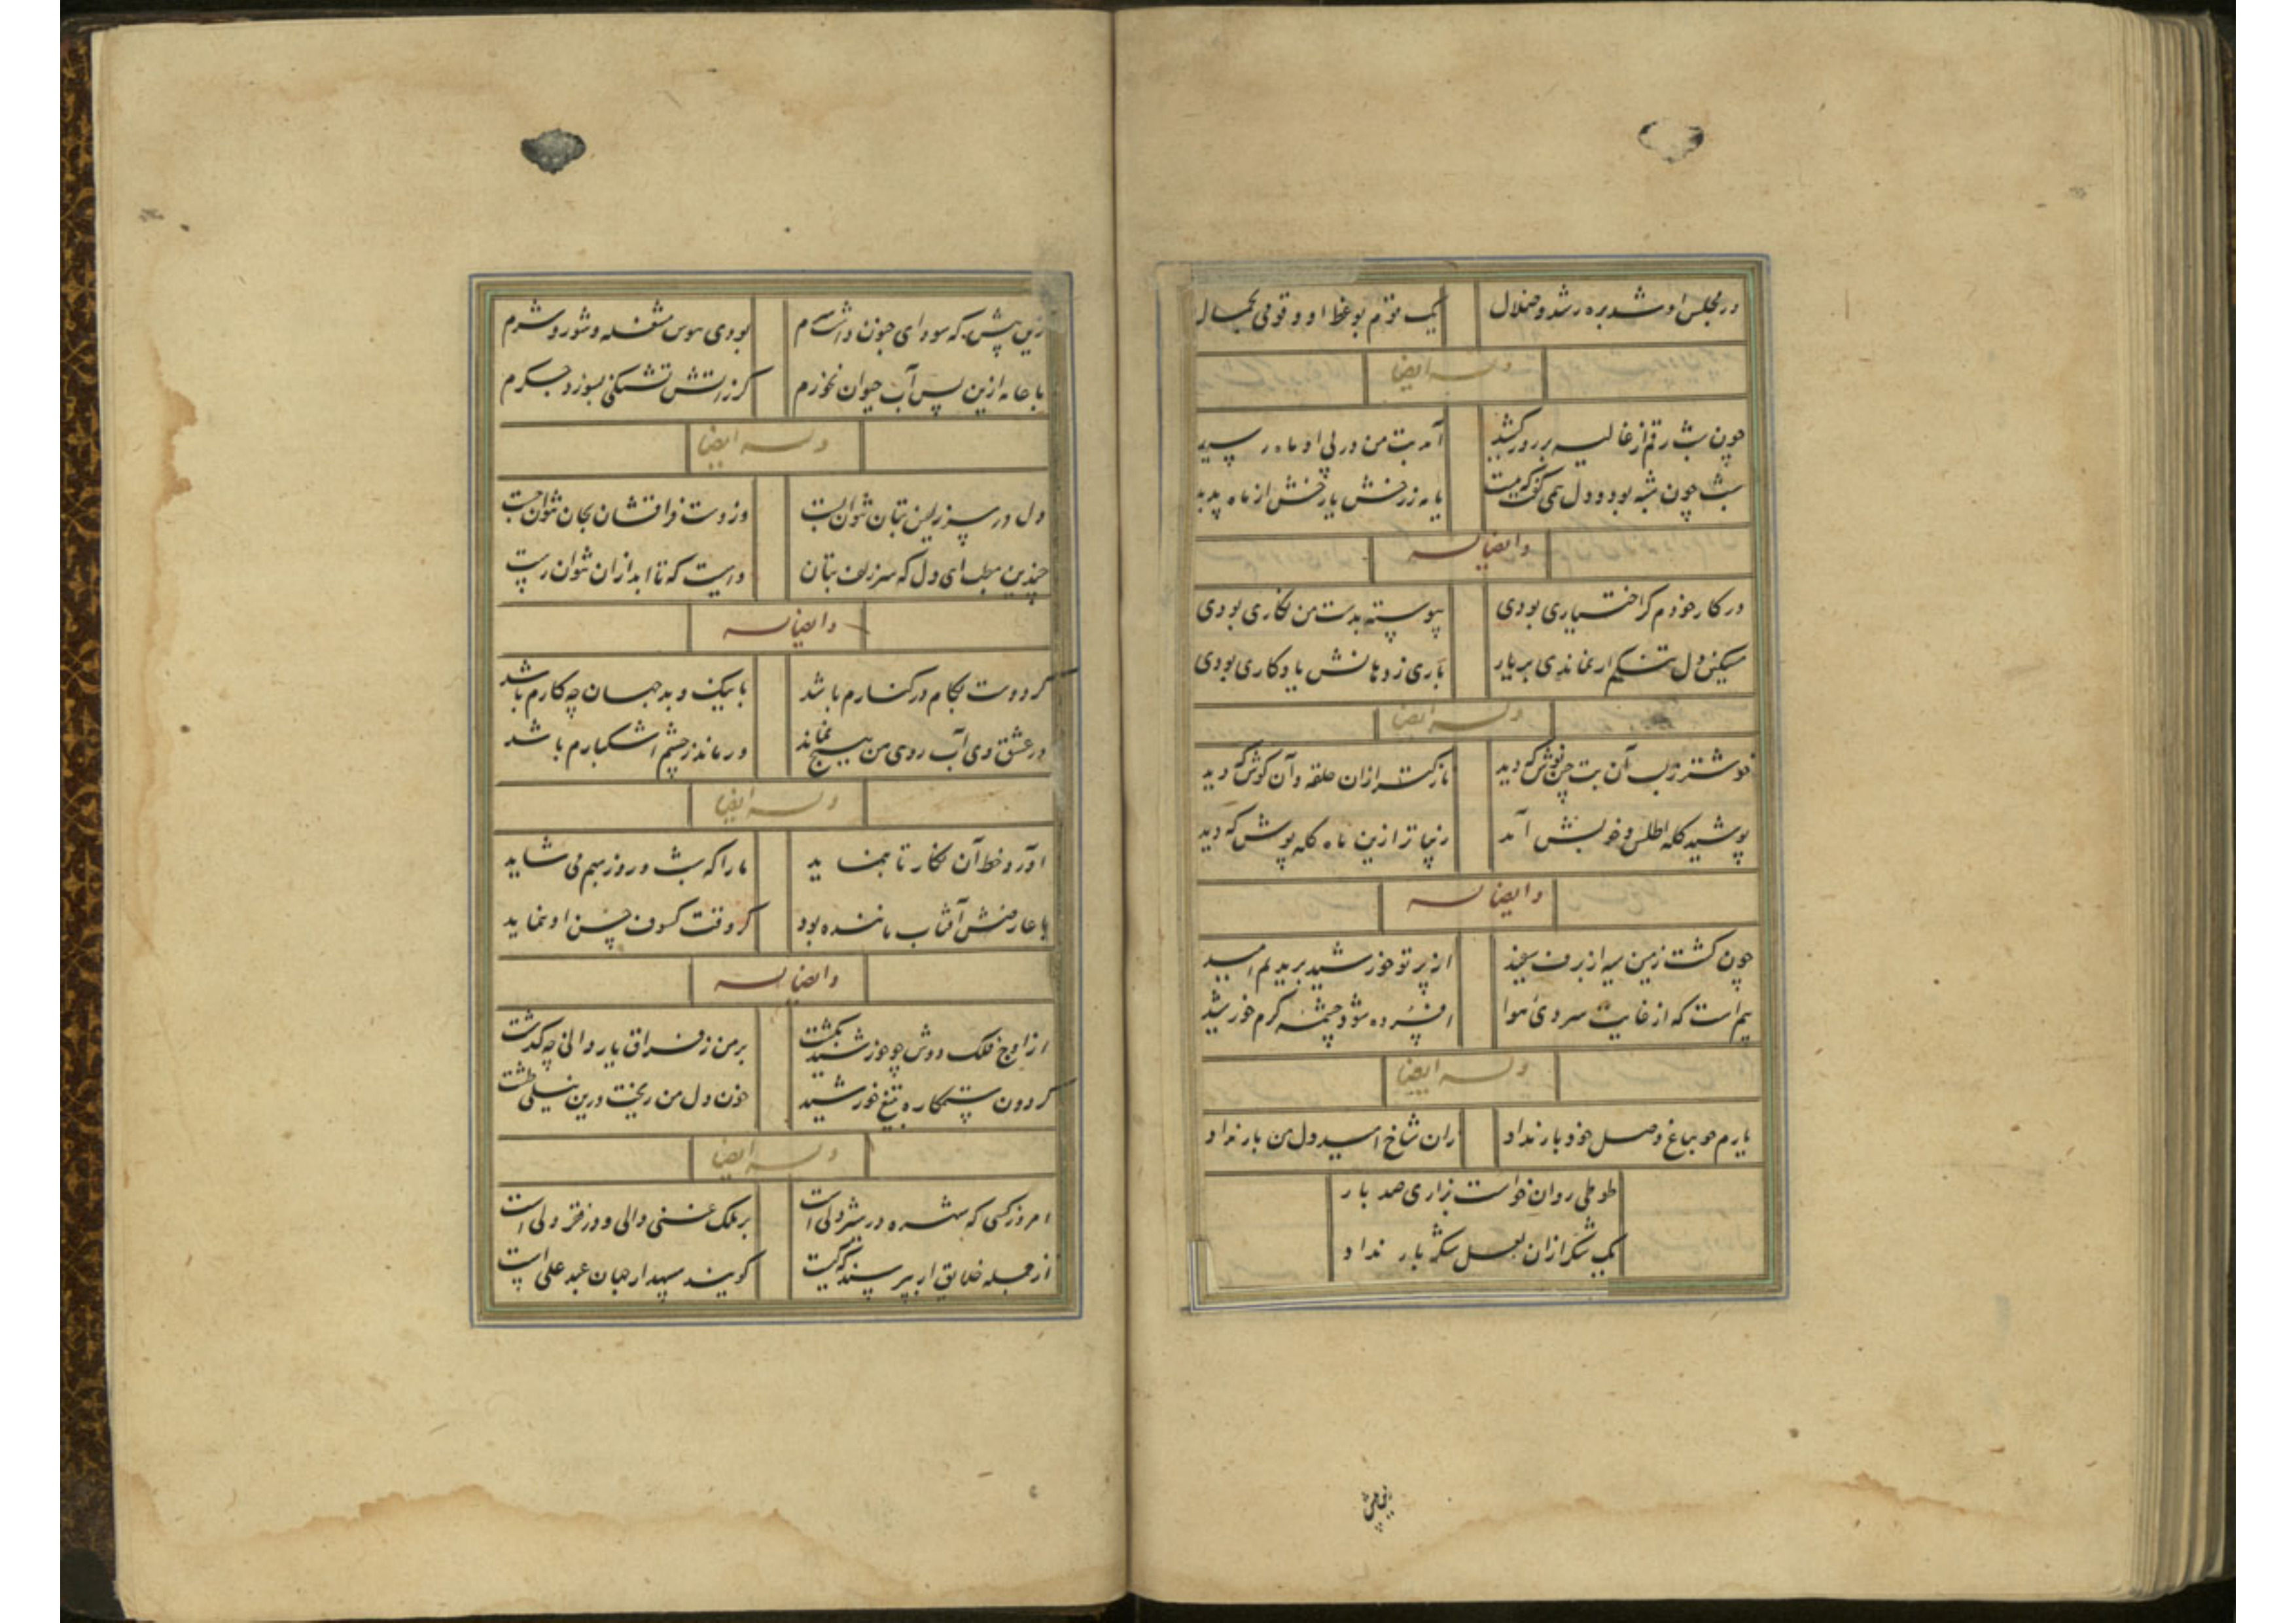 در مجلس او شد بره رشد و ضلال یک قوم بوعظ او و قومی بخیال
وله ایضا
چون شب رقم از غالیه بر روز کشید آمد بت من در پی او ماه رسید
شب چون شبه بود و دل همی گفت که نیست یا مه ز رخش یا رخش از ماه پدید
و ایضا له
در کار خودم گر اختیاری بودی پیوسته بدست من نگاری بودی
مسکین دل تنگم ار نماندی بر یار باری ز دهانش یادگاری بودی
وله ایضا
خوشتر ز لب آن بت چین نوش که دید نازکتر ازان حلقه و آن گوش که دید
پوشید کله اطلس و خوبش آمد زیباتر ازین ماه کله پوش که دید
و ایضا له
چون گشت زمین سیه از برف سفید از پرتو خورشید بریدیم امید
بیم است که از غایت سردی هوا افسرده شود چشمه گرم خورشید
وله ایضا
یارم چو بباغ وصل خود بار نداد زان شاخ امید دل من بار نداد
طوطی روان خواست بزاری صد بار
یک شکر ازان لعل شکر بار نداد
زین پیش
زین پیش که سودای جنون داشت سرم بودی هوس مشغله و شور و شرم
با جانه ازین پس آب حیوان نخورم گر ز آتش تشنگی بسوزد جگرم
وله ایضا
دل در سر زلفین بتان نتوان بست وز دست فراقشان بجان نتوان جست
چندین مطلب ای دل که سر زلف بتان دامیست که تا ابد ازان نتوان رست
و ایضا له
گر دوست بکام در کنارم باشد با نیک و بد جهان چه کارم باشد
در عشق وی آب روی من هیچ نماند ور ماند ز چشم اشکبارم باشد
وله ایضا
آورد خط آن نگار تا بنماید ما را که شب و روز بهم می شاید
با عارضش آفتاب ماننده بود گر وقت کسوف حسن او ننماید
و ایضا له
از اوج فلک دوش چو خورشید بگشت بر من ز فراق یار دانی چه گذشت
گردون ستمکاره بتیغ خورشید خون دل من ریخت درین نیلی طشت
وله ایضا
امروز کسی که شهره در شیر دلی است بر ملک غنی والی و در فقر ولی است
از جمله خلایق ار بپرسند که کیست گویند سپهدار جهان عبد علی است